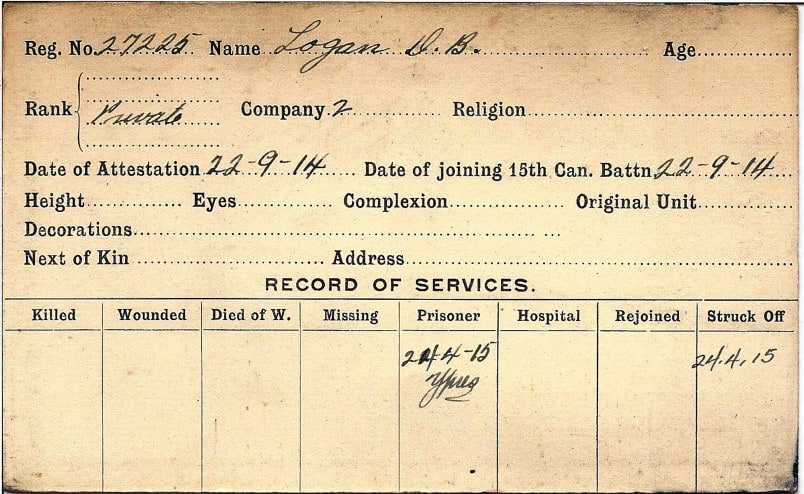 Reg. No. 27225 Name Logan D. B. Age
Rank Private Company 2 Religion
Date of Attestation 22-9-14 Date of joining 15th Can. Battn 22-9-14
Height Eyes Complexion Original Unit
Decorations
Next of Kin Address
RECORD OF SERVICES.
Killed Wounded Died of W. Missing Prisoner Hospital Rejoined Struck Off
24-4-15 24.4.15
Ypres